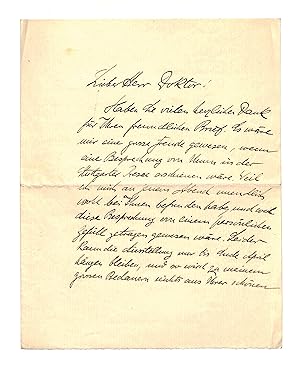 Lieber Herr Doktor!
Haben Sie vielen herzlichen Dank
für Ihren freundlichen Brief. Es wäre
mir eine grosse Freude gewesen, wenn
eine Besprechung von Ihnen in der
Stuttgarter Presse erschienen wäre. Weil
ich mich an jenem Abend unendlich
wohl bei Ihnen befunden habe, und auch
diese Besprechung von einem persönlichen
Gefühl getragen gewesen wäre. Leider
kann die Ausstellung nur bis Ende April
hängen bleiben, und so wird zu meinem
grossen Bedauern nichts aus Ihrer schönen